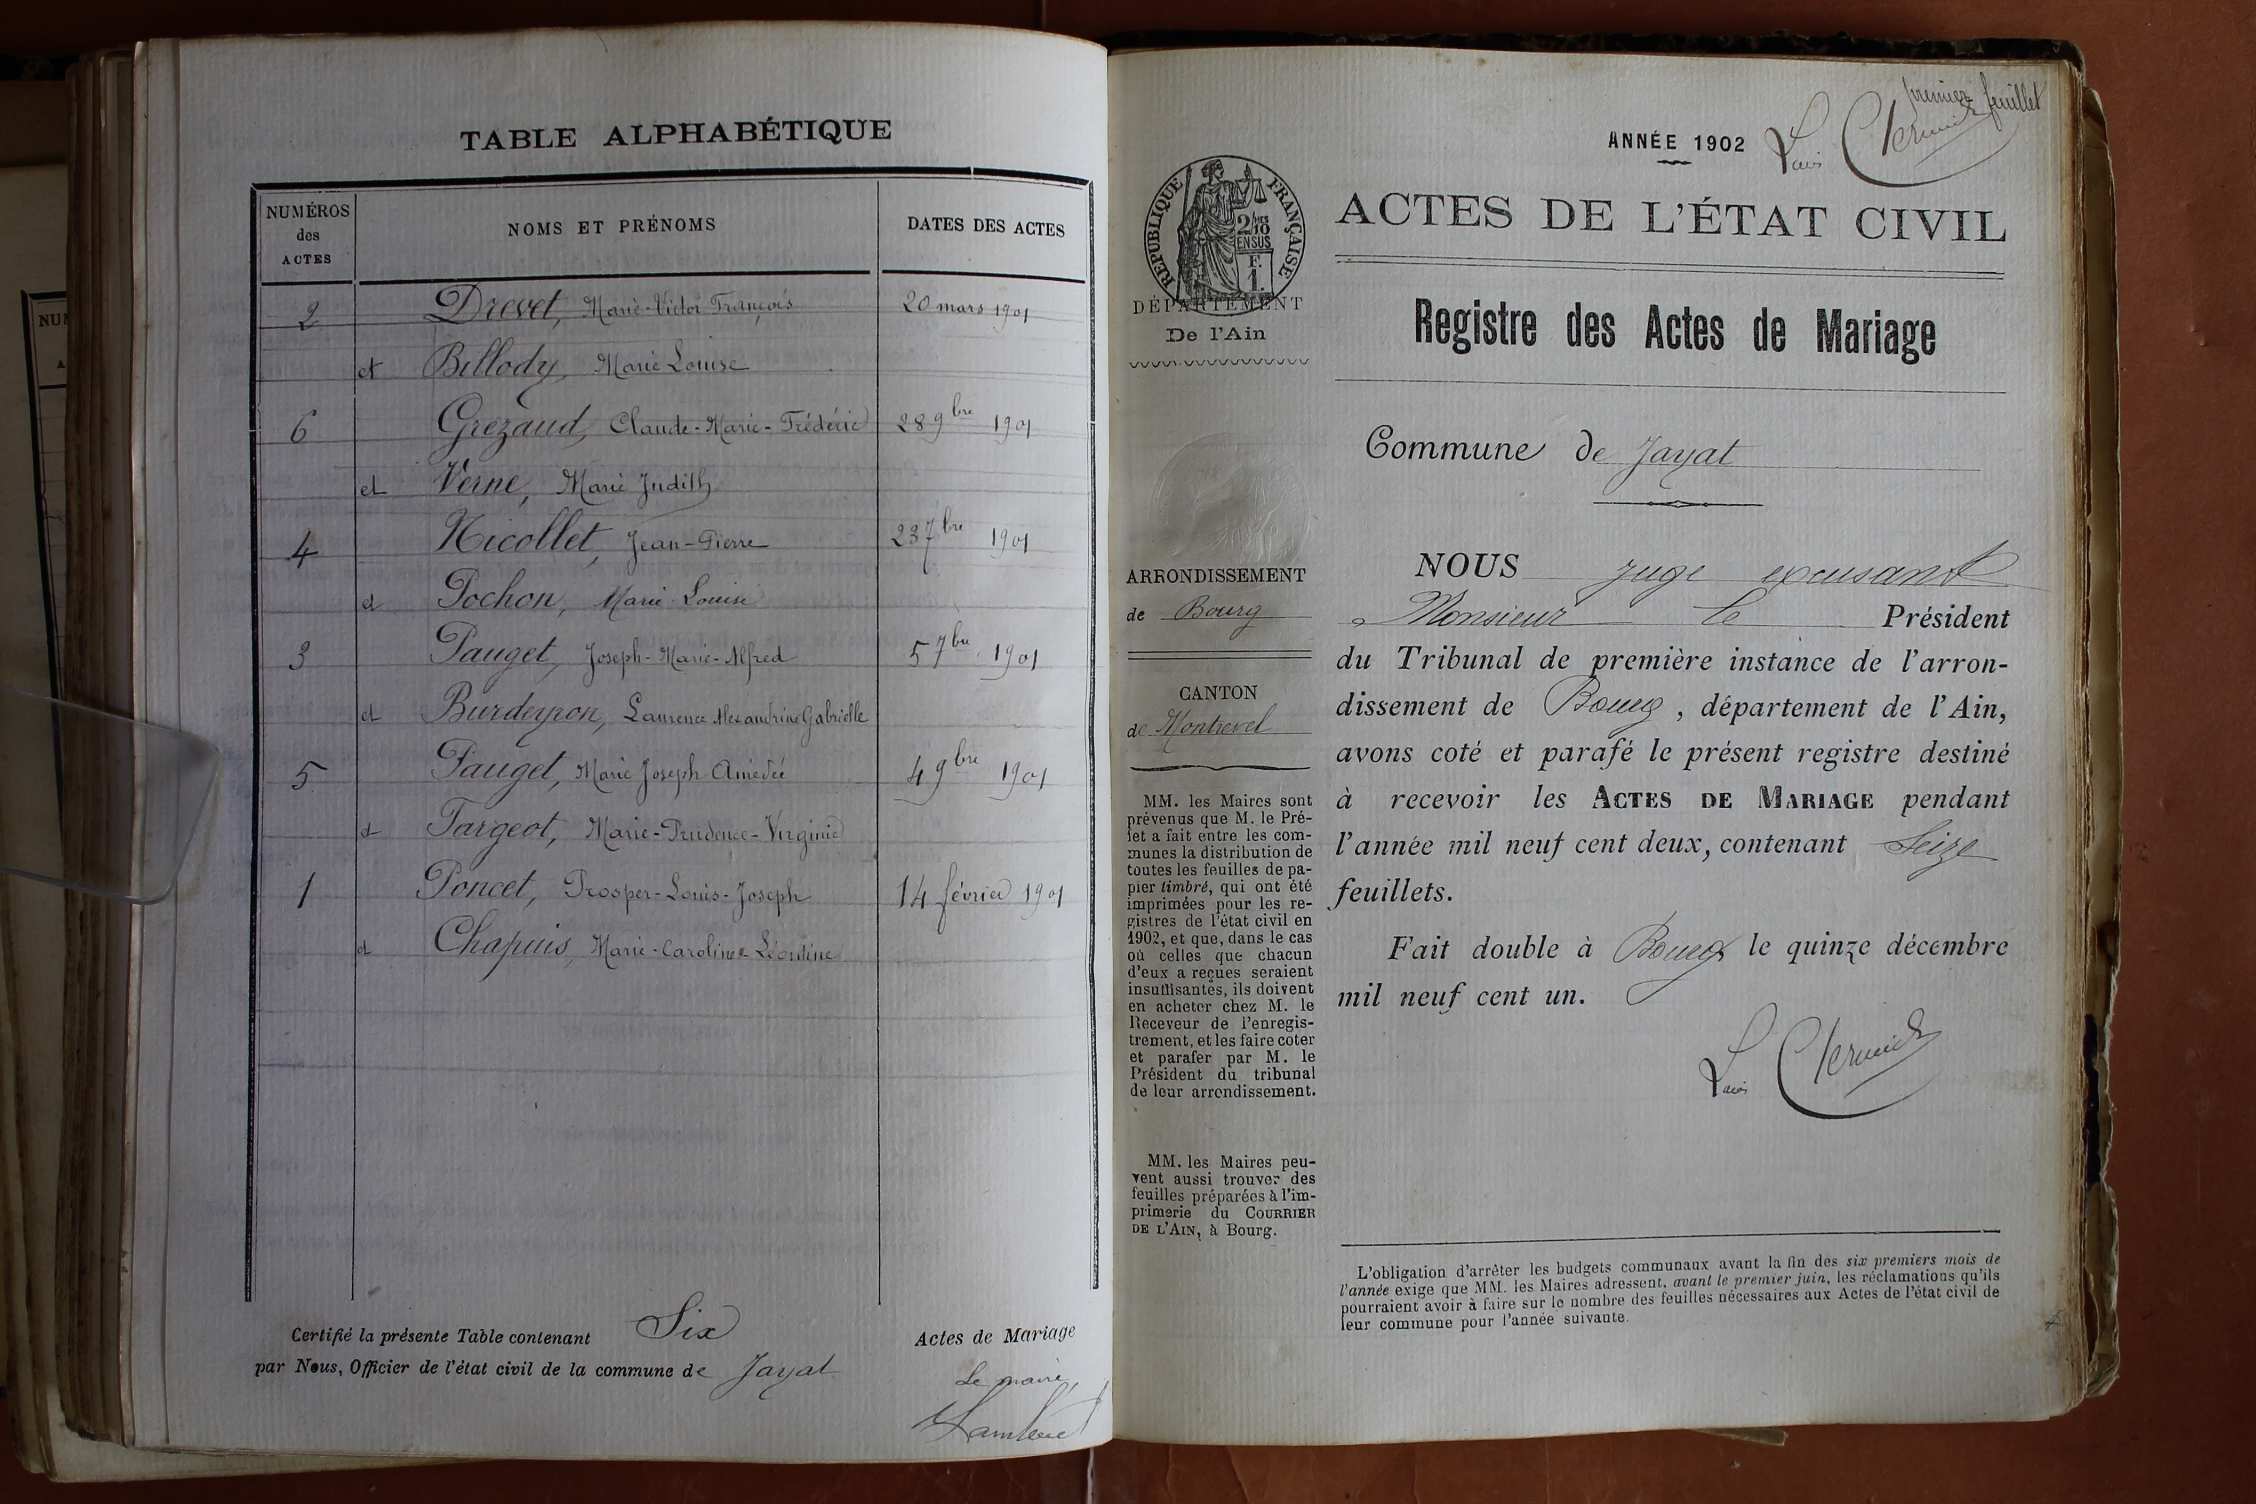 TABLE ALPHABÉTIQUE
NUMÉROS des ACTES
NOMS ET PRÉNOMS
DATES DES ACTES
2 Drevet, Marie-Victor François 20 mars 1901
et Billody, Marie Louise
6 Grezaud, Claude-Marie-Frédéric 28 9bre 1901
et Verne, Marie Judith
4 Nicollet, Jean-Pierre 23 7bre 1901
et Pochon, Marie Louise
3 Pauget, Joseph-Marie-Alfred 5 7bre 1901
et Burdeyron, Laurence Alexandrine Gabrielle
5 Pauget, Marie Joseph Amédée 4 9bre 1901
et Targeot, Marie-Prudence-Virginie
1 Poncet, Prosper-Louis-Joseph 14 février 1901
et Chapuis, Marie-Caroline Léontine
Certifié la présente Table contenant Six Actes de Mariage
par Nous, Officier de l'état civil de la commune de Jayat
Le maire,
NUM
premier feuillet
ANNÉE 1902
Louis Clermidy
RÉPUBLIQUE FRANÇAISE
2/10
EN SUS
F.
1.
ACTES DE L'ÉTAT CIVIL
DÉPARTEMENT
De l'Ain
Registre des Actes de Mariage
Commune de Jayat
ARRONDISSEMENT
de Bourg
CANTON
de Montrevel
MM. les Maires sont
prévenus que M. le Pré-
fet a fait entre les com-
munes la distribution de
toutes les feuilles de pa-
pier timbré, qui ont été
imprimées pour les re-
gistres de l'état civil en
1902, et que, dans le cas
où celles que chacun
d'eux a reçues seraient
insuffisantes, ils doivent
en acheter chez M. le
Receveur de l'enregis-
trement, et les faire coter
et parafer par M. le
Président du tribunal
de leur arrondissement.
MM. les Maires peu-
vent aussi trouver des
feuilles préparées à l'im-
primerie du COURRIER
DE L'AIN, à Bourg.
NOUS juge excusant
Monsieur le Président
du Tribunal de première instance de l'arron-
dissement de Bourg, département de l'Ain,
avons coté et parafé le présent registre destiné
à recevoir les ACTES DE MARIAGE pendant
l'année mil neuf cent deux, contenant Seize
feuillets.
Fait double à Bourg le quinze décembre
mil neuf cent un.
Louis Clermidy
L'obligation d'arrêter les budgets communaux avant la fin des six premiers mois de
l'année exige que MM. les Maires adressent, avant le premier juin, les réclamations qu'ils
pourraient avoir à faire sur le nombre des feuilles nécessaires aux Actes de l'état civil de
leur commune pour l'année suivante.